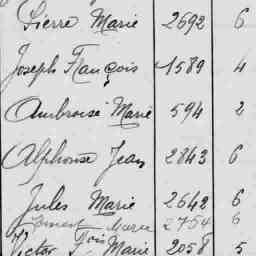 Pierre Marie 2692 6
Joseph François 1589 4
Ambroise Marie 594 2
Alphonse Jean 2843 6
Jules Marie 2642 6
Marie 2754 6
Victor Fois Marie 2058 5